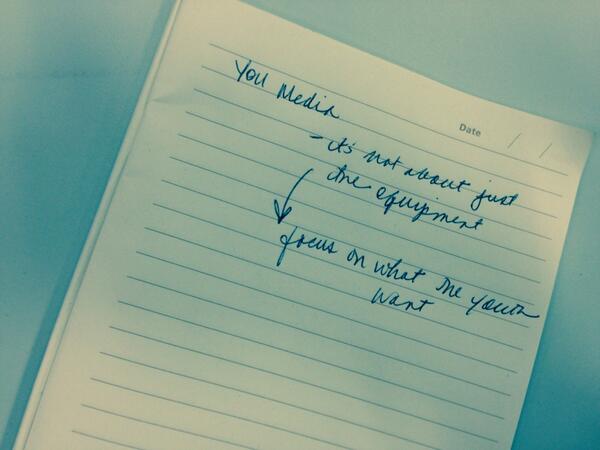 You Media
Date / /
- it's not about just
the equipment
focus on what the youth
want